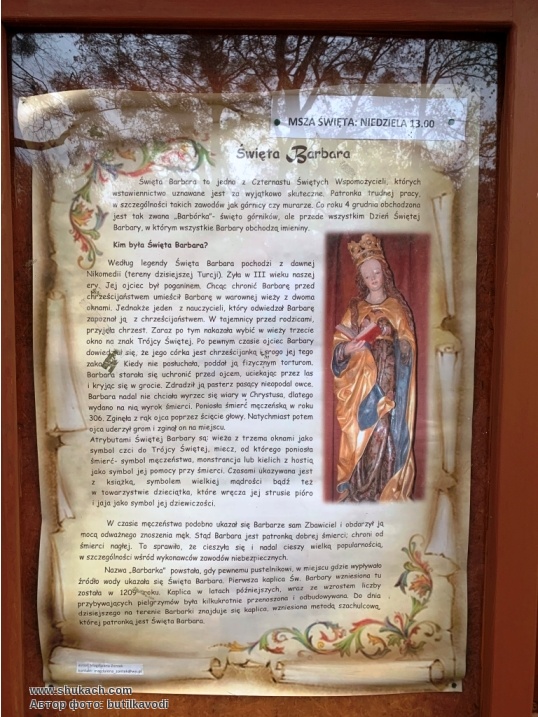 MSZA ŚWIĘTA: NIEDZIELA 13.00
Święta Barbara
Święta Barbara to jedna z Czternastu Świętych Wspomożycieli, których
wstawiennictwo uznawane jest za wyjątkowo skuteczne. Patronka trudnej pracy,
w szczególności takich zawodów jak górnicy czy murarze. Co roku 4 grudnia obchodzona
jest tak zwana „Barbórka"- święto górników, ale przede wszystkim Dzień Świętej
Barbary, w którym wszystkie Barbary obchodzą imieniny.
Kim była Święta Barbara?
Według legendy Święta Barbara pochodzi z dawnej
Nikomedii (tereny dzisiejszej Turcji). Żyła w III wieku naszej
ery. Jej ojciec był poganinem. Chcąc chronić Barbarę przed
chrześcijaństwem umieścił Barbarę w warownej wieży z dwoma
oknami. Jednakże jeden z nauczycieli, który odwiedzał Barbarę
zapoznał ją z chrześcijaństwem. W tajemnicy przed rodzicami,
przyjęła chrzest. Zaraz po tym nakazała wybić w wieży trzecie
okno na znak Trójcy Świętej. Po pewnym czasie ojciec Barbary
dowiedział się, że jego córka jest chrześcijanką i srogo jej tego
Kiedy nie posłuchała, poddał ją fizycznym torturom.
Barbara starała się uchronić przed ojcem, uciekając przez las
i kryjąc się w grocie. Zdradził ją pasterz pasący nieopodal owce.
Barbara nadal nie chciała wyrzec się wiary w Chrystusa, dlatego
wydano na nią wyrok śmierci. Poniosła śmierć męczeńską w roku
306. Zginęła z rąk ojca poprzez ścięcie głowy. Natychmiast potem
ojca uderzył grom i zginął on na miejscu.
Atrybutami Świętej Barbary są: wieża z trzema oknami jako
symbol czci do Trójcy Świętej, miecz, od którego poniosła
śmierć- symbol męczeństwa, monstrancja lub kielich z hostią
jako symbol jej pomocy przy śmierci. Czasami ukazywana jest
z książką, symbolem wielkiej mądrości bądź też
w towarzystwie dzieciątka, które wręcza jej strusie pióro
i jaja jako symbol jej dziewiczości.
W czasie męczeństwa podobno ukazał się Barbarze sam Zbawiciel i obdarzył ją
mocą odważnego znoszenia mąk. Stąd Barbara jest patronką dobrej śmierci; chroni od
śmierci nagłej. To sprawiło, że cieszyła się i nadal cieszy wielką popularnością,
w szczególności wśród wykonawców zawodów niebezpiecznych.
Nazwa „Barbarka" powstała, gdy pewnemu pustelnikowi, w miejscu gdzie wypływało
źródło wody ukazała się Święta Barbara. Pierwsza kaplica Św. Barbary wzniesiona tu
została w 1205 roku. Kaplica w latach późniejszych, wraz ze wzrostem liczby
przybywających, pielgrzymów była kilkukrotnie przenoszona i odbudowywana. Do dnia
dzisiejszego na terenie Barbarki znajduje się kaplica, wzniesiona metodą szachulcową,
której patronką jest Święta Barbara.
www.shukach.com
Автор фото: butilkavodi